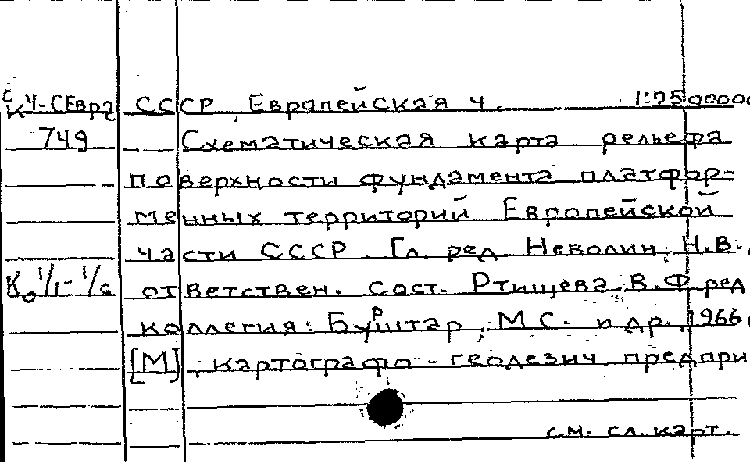 К Ч-СЕвра СССР, Европейская ч. 1:2500000
749 Схематическая карта рельефа
поверхности фундамента платфор-
менных территорий Европейской
части СССР. Гл. ред. Неволин, Н.В.,
ответствен. сост. Ртищева, В.Ф. ред
коллегия: Буштар, М.С. и др. 1966,
[М], картографо-геодезич. предпри
см. сл. карт.